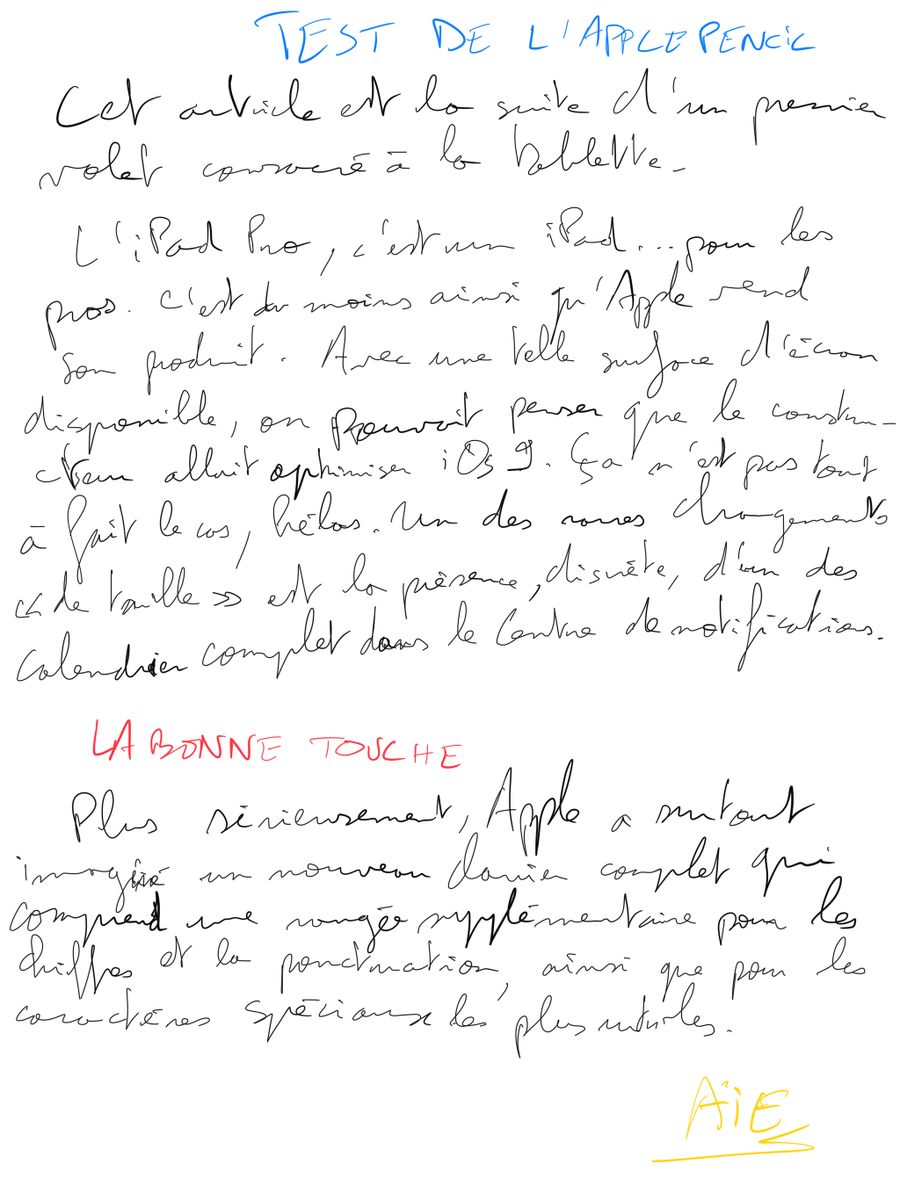 TEST DE L'APPLE PENCIL
Cet article est la suite d'un premier
volet consacré à la tablette.
L'iPad Pro, c'est un iPad... pour les
pros. C'est du moins ainsi qu'Apple vend
son produit. Avec une telle surface d'écran
disponible, on pouvait penser que le constru-
cteur allait optimiser iOs 9. Ça n'est pas tout
à fait le cas, hélas. Un des rares changements
« de taille » est la présence, discrète, d'un des
calendrier complet dans le Centre de notifications.
LA BONNE TOUCHE
Plus sérieusement, Apple a surtout
imaginé un nouveau clavier complet qui
comprend une rangée supplémentaire pour les
chiffres et la ponctuation, ainsi que pour les
caractères spéciaux les plus utiles.
AÏE